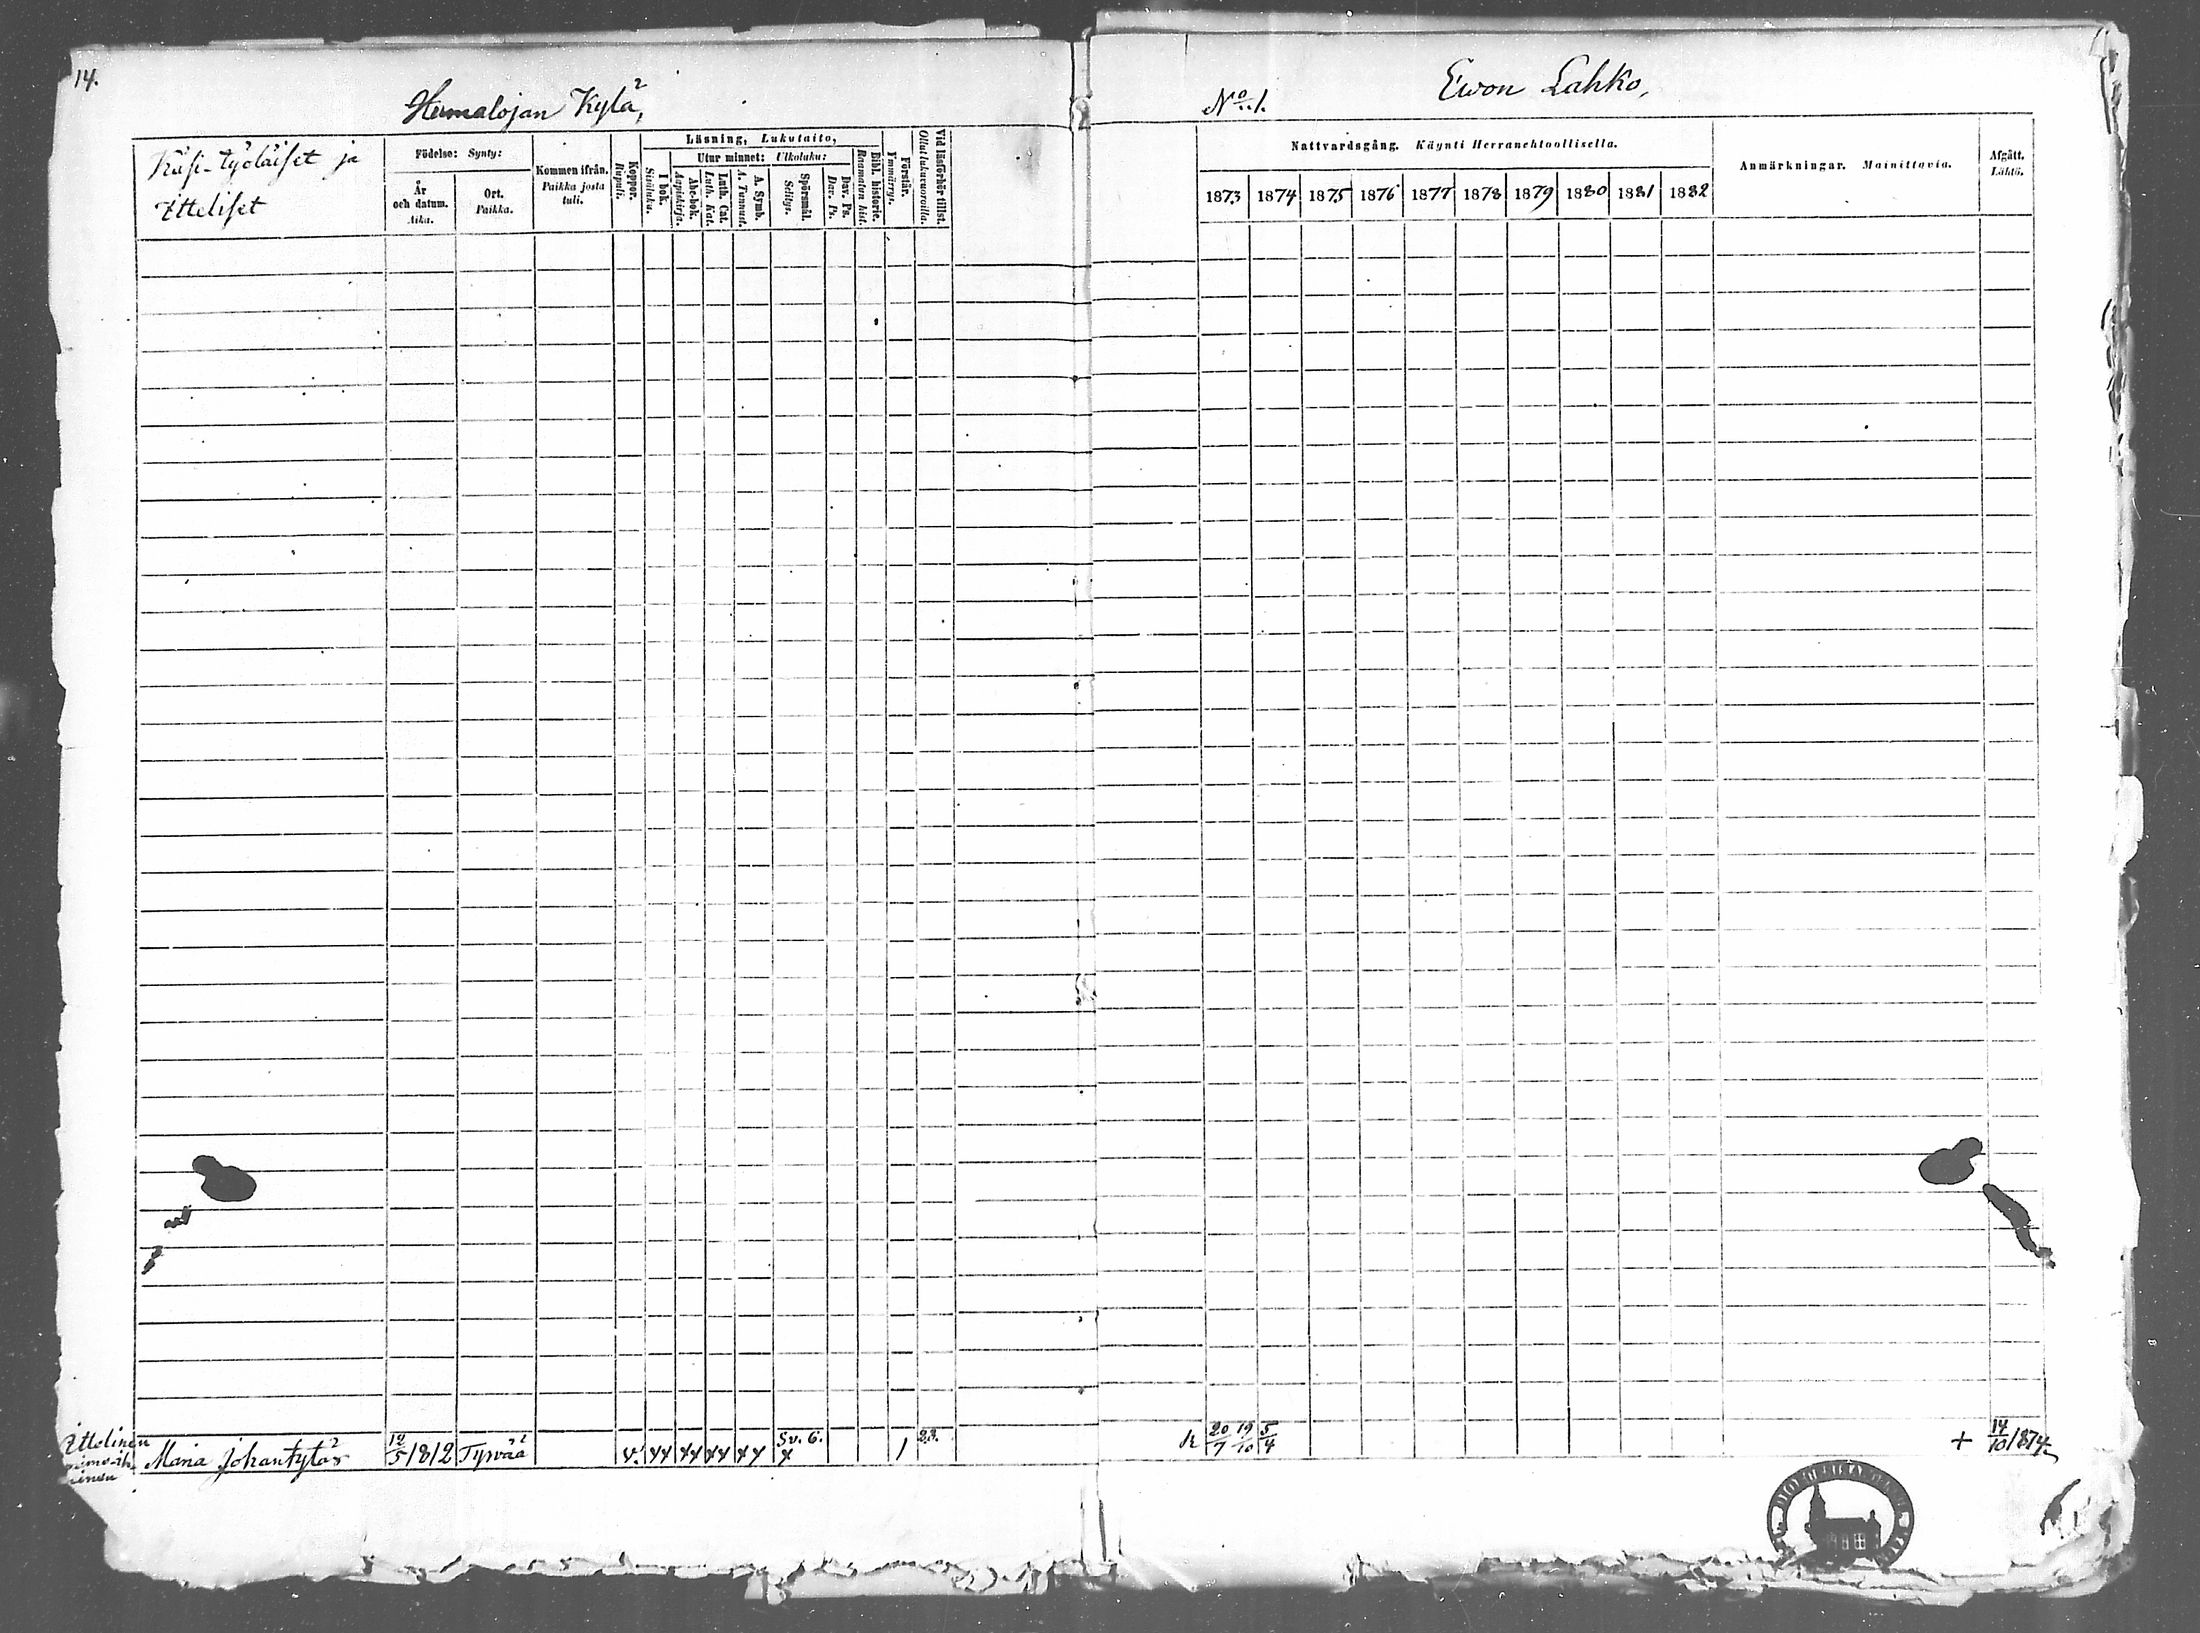 14.
Humalojan Kylä,
No 1.
Ewon Lahko,
Käsi-työläiset ja
Itteliset
Födelse: Synty:
År
och datum.
Aika.
Ort.
Paikka.
Kommen ifrån.
Paikka josta
tuli.
Koppor.
Rupuli.
Läsning, Lukutaito,
I bok.
Sisäluku.
Utur minnet: Ulkoluku:
Abc-bok.
Aapiskirja.
Luth. Cat.
Luth. Kat.
A. Symb.
A. Tunnust.
Spörsmål.
Selitys.
Dav. Ps.
Dav. Ps.
Bibl. historie.
Raamatun hist.
Förstår.
Ymmärrys.
Vid läsförhör tillst.
Ollut lukuvuoroilla.
Nattvardsgång. Käynti Herranehtoollisella.
1873 1874 1875 1876 1877 1878 1879 1880 1881 1882
Anmärkningar. Mainittavia.
Afgått.
Lähtö.
Ittelinen
Maria Johantytär 12/5 1812 Tyrvää v. Sv. 6. 1 23. 20/7 19/10 5/4 + 14/10 1874